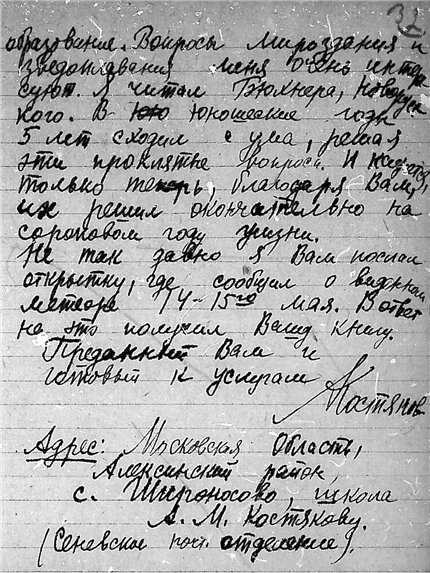 32
образование. Вопросы мироздания и
звездоплавания меня очень интере
суют. Я читал Бюхнера,
кого. В юношеские годы
5 лет сходил с ума, решая
эти проклятые вопросы. И кажется,
только теперь, благодаря Вам,
их решил окончательно на
сороковом году жизни.
Не так давно я Вам послал
открытку, где сообщил о виденном
метеоре 14-15го мая. В ответ
на это получил Вашу книгу.
Преданный Вам и
готовый к услугам
Костяков
Адрес: Московская Область,
Алексинский район,
с. Широносово, школа
А. М. Костякову.
(Сеневское поч. отделение).